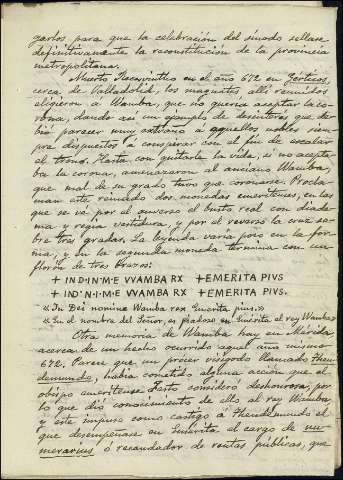 garlos para que la celebración del sínodo sellase
definitivamente la reconstitución de la provincia
metropolitana.
Muerto Recesvinthio en el año 672 en Gérticos,
cerca de Valladolid, los magnates allí reunidos
eligieron a Wamba, que no quería aceptar la co-
rona, dando así un ejemplo de desinterés que de-
bió parecer muy extraño a aquellos nobles siem-
pre dispuestos a conspirar con el fin de escalar
el trono. Hasta con quitarle la vida, si no acepta-
ba la corona, amenazaron al anciano Wamba,
que mal de su grado tuvo que coronarse. Procla-
man este reinado dos monedas emeritenses, en las
que se ve por el anverso el busto real con diade-
ma y regia vestidura, y por el reverso la cruz so-
bre tres gradas. La leyenda varía poco en la for-
ma, y en la segunda moneda termina con un
florón de tres brazos:
+ IND·IN·M·E VVAMBA RX +EMERITA PIVS
+ IND·N·I·M·E VVAMBA RX +EMERITA PIVS.
«In Dei nomine Wamba rex Emerita pius.»
«En el nombre del Señor, es piadoso en Emerita el rey Wamba»
Otra memoria de Wamba hay en Mérida
acerca de un hecho ocurrido aquel año mismo
672. Parece que un prócer visigodo llamado Theu-
demundo, había cometido alguna acción que el
obispo emeritense Festo consideró deshonrosa, por
lo que dió conocimiento de ello al rey Wamba,
y este impuso como castigo á Theudemundo el
que desempeñase en Emerita el cargo de nu-
merarius ó recaudador de rentas públicas, que